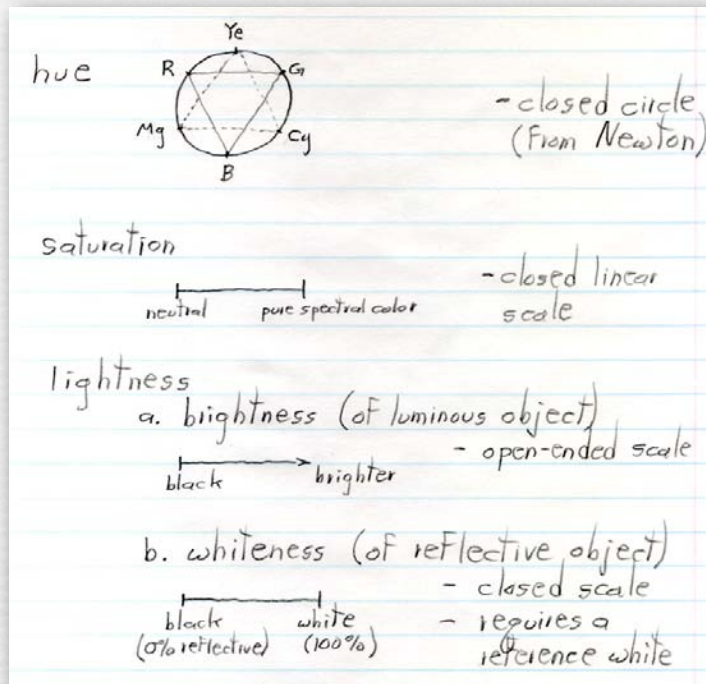 hue
Ye
R G
Mg Cy
B
- closed circle
(From Newton)
saturation
neutral pure spectral color
- closed linear
scale
lightness
a. brightness (of luminous object)
- open-ended scale
black brighter
b. whiteness (of reflective object)
- closed scale
black white
- requires a
(0% reflective) (100%)
reference white